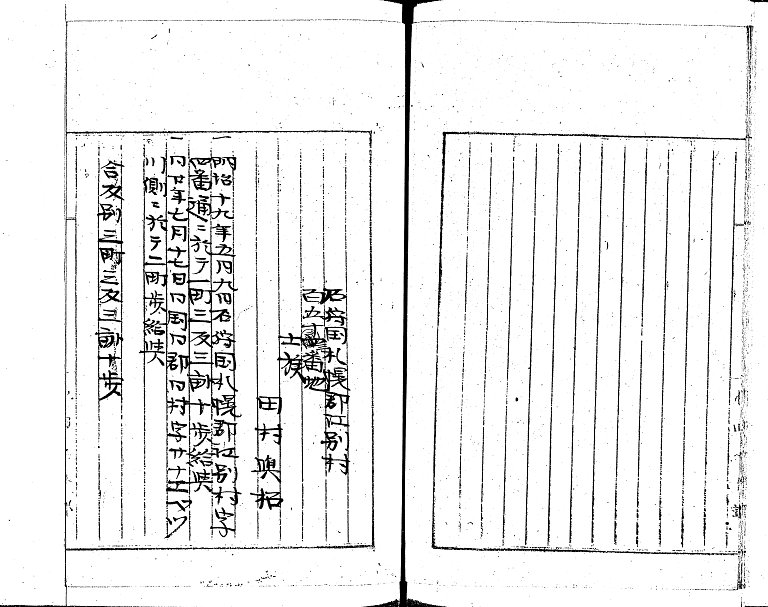 石狩国札幌郡江別村
百五番地
士族
田村
一明治十九年五月九日石狩国札幌郡江別村字
四番通ニ於テ一町三反三畝十歩給与
一同廿年七月十七日同国同郡同村字
川側ニ於テ二町歩給与
合反別三町三反三畝十歩